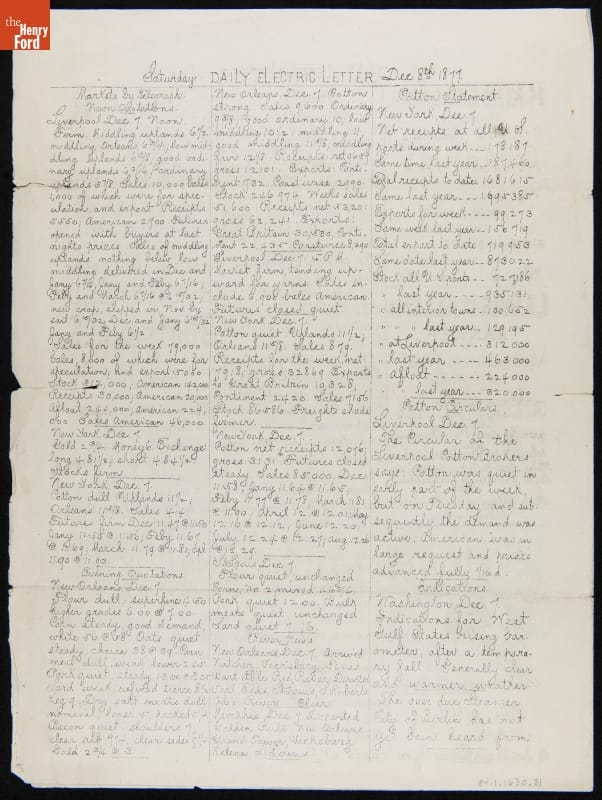 the
Henry
Ford
Saturday DAILY ELECTRIC LETTER Dec 8th 1877.
Markets by Telegraph
Noon Quotations.
Liverpool Dec 7 Noon
Firm. Middling uplands 6 1/2
middling Orleans 6 3/4, low mid-
dling uplands 6 3/8, good ordi-
nary uplands 6 3/16, ordinary
uplands 5 7/8. Sales 10,000 bales
1,000 of which were for spec-
ulation and export Receipts
5,550, American 2700 Futures
opened with buyers at last
nights prices. Sales of middling
uplands nothing below low
middling delivered in Dec and
Jany 6 7/16, Jany and Feby 6 7/16,
Feby and March 6 7/16 @ 6 15/32,
new crop, shipped in Nov by
sail 6 15/32, Dec and Jany
Jany and Feby 6 1/2
Sales for the week 79,000
bales, 8,000 of which were for
speculation, and export 5080.
Stock 312,000, American 142,000
Receipts 30,000, American 20,000
Afloat 244,000, American 224,
000 Sales American 46,000.
New York, Dec 7
Gold 2 3/4 Money 6. Exchange
long 481 1/2, short 484 1/2
Stocks firm.
New York, Dec 7.
Cotton dull Uplands 11 1/4,
Orleans 11 5/8. Sales 414
Futures firm Dec 11.47 @ 11.50
Jany 11.55 @ 11.56, Feby 11.67
@ 11.69, March 11.79 @ 11.81, Apl
11.90 @ 11.93.
Evening Quotations
New Orleans Dec 7
Flour dull, superfine 4.50
higher grades 6.00 @ 7.00
Corn steady, good demand,
white 56 @ 58 Oats quiet
steady, choice 38 @ 39 Corn
meal dull, easier, lower 2.65
Pork quiet, steady 13.00
Lard weak, refined tierce 8 1/2
keg 9. Dry salt meats dull
nominal, loose 5, packed 5 1/4
Bacon quiet shoulders 7,
clear rib 9 1/4, clear sides 9 1/2
Gold 2 3/4 @ 3.
New Orleans, Dec 7 Cotton
strong Sales 9,000 Ordinary
9 3/8, good ordinary 10, low
middling 10 1/2, middling 11,
good middling 11 5/8, middling
fair 12 1/8. Receipts net 9659
gross 12101. Exports Conti-
nent 732. Coastwise 2990.
Stock 246974 Weeks sales
51,600 Receipts net 53201
gross 62,241. Exports
Great Britain 30,530, Conti-
nent 22,435 Coastwise 8,290
Liverpool Dec 7 5 P.M.
Market firm, tending up-
ward for yarns. Sales in-
clude 6,900 bales American.
Futures closed quiet
New York Dec 7
Cotton quiet Uplands 11 1/2,
Orleans 11 5/8. Sales 879.
Receipts for the week net
7018, gross 32869 Exports
to Great Britain 10,328,
Continent 2420 Sales 7150
Stock 86086 Freights shade
firmer.
New York Dec 7
Cotton net receipts 12,076,
gross 3191 Futures closed
steady Sales 85,000 Dec
11.53 Jany 11.64 @ 11.65,
Feby 11.77 @ 11.78, March 11.81
@ 11.90, April 12 @ 12.01, May
12.10 @ 12.12, June 12.20,
July 12.24 @ 12.27, Aug 12.26
@ 12.29
St Louis Dec 7
Flour quiet, unchanged
Corn, No 2 mixed
Pork quiet 12.00 Bulk
meats quiet unchanged
Lard quiet
River News
New Orleans Dec 7 Arrived
Natchez, Vicksburg, Texas
Departed
Fog River Clear
Memphis Dec 7 Departed
Golden Rule New Orleans
Vicksburg
Helena St Louis
Cotton Statement
New York, Dec 7
Net receipts at all U.S.
ports during week --- 178187
Same time last year - 187466
Total receipts to date 1681615
Same last year -- 1895385
Exports for week -- 99273
Same week last year - 150719
Total export to date - 719953
Same date last year - 873022
Stock all U.S. ports - 727186
" last year ---- 935131
" all interior towns - 100652
" " last year -- 129195
" at Liverpool --- 312000
" last year ---- 463000
" Afloat ---- 224000
" last year --- 320000
Cotton Circulars.
Liverpool Dec 7
The Circular of the
Liverpool Cotton Brokers
says: Cotton was quiet in
early part of the week,
but on Tuesday and sub-
sequently the demand was
active, American was in
large request and prices
advanced fully 1/16 d
Indications.
Washington Dec 7
Indications for West
Gulf States rising bar-
ometer, after a tempora-
ry fall Generally clear
and warmer weather
The over due steamer
City of Berlin has not
yet been heard from
84.1.1630.81